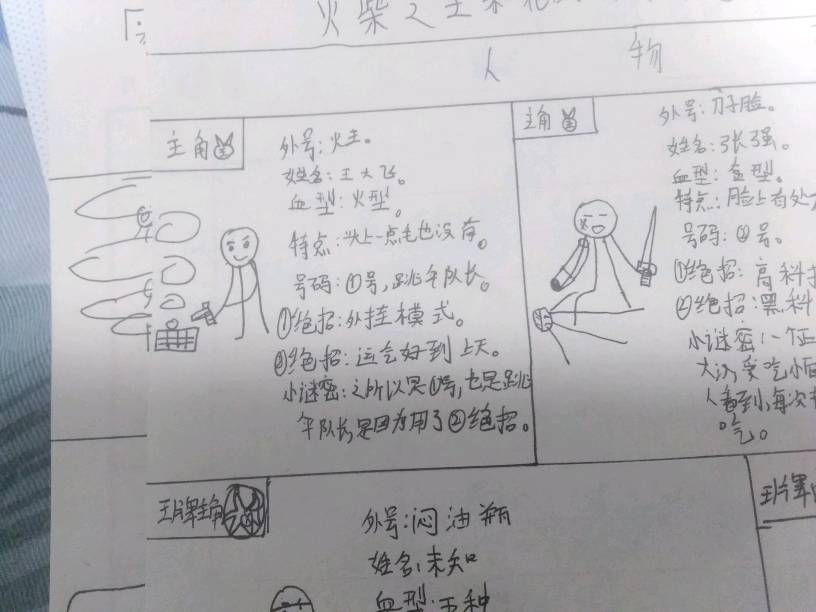 火柴之王
人 物
主角
外号:火王。
姓名:王大飞。
血型:火型。
特点:头上一点毛也没有。
号码:①号,跳伞队长。
①绝招:外挂模式。
②绝招:运气好到上天。
小谜密:之所以是①号,也是跳
伞队长是因为用了②绝招。
主角
外号:刀子脸。
姓名:张强。
血型:金型。
特点:脸上有处
号码:②号。
①绝招:高科技
②绝招:黑科
小谜密:
人看到,每次
吃。
王牌主角
外号:闷油瓶
姓名:未知
血型:王种
王牌